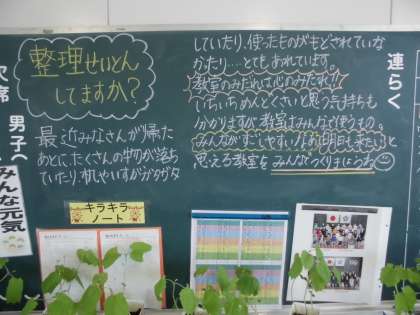 整理せいとん
してますか?
最近みなさんが帰った
あとにたくさんの物が落ち
ていたり、机やいすがガタガタ
していたり、使ったものがもどされていな
かったり……とてもあれています。
教室のみだれは心のみだれ!!
いちいちめんどくさいと思う気持ちも
分かりますが教室はみんなで使うもの。
みんながすごしやすいな、明日も来たいと
思える教室をみんなでつくりましょう
連らく
欠席
男子
みんな元気
キラキラ
ノート